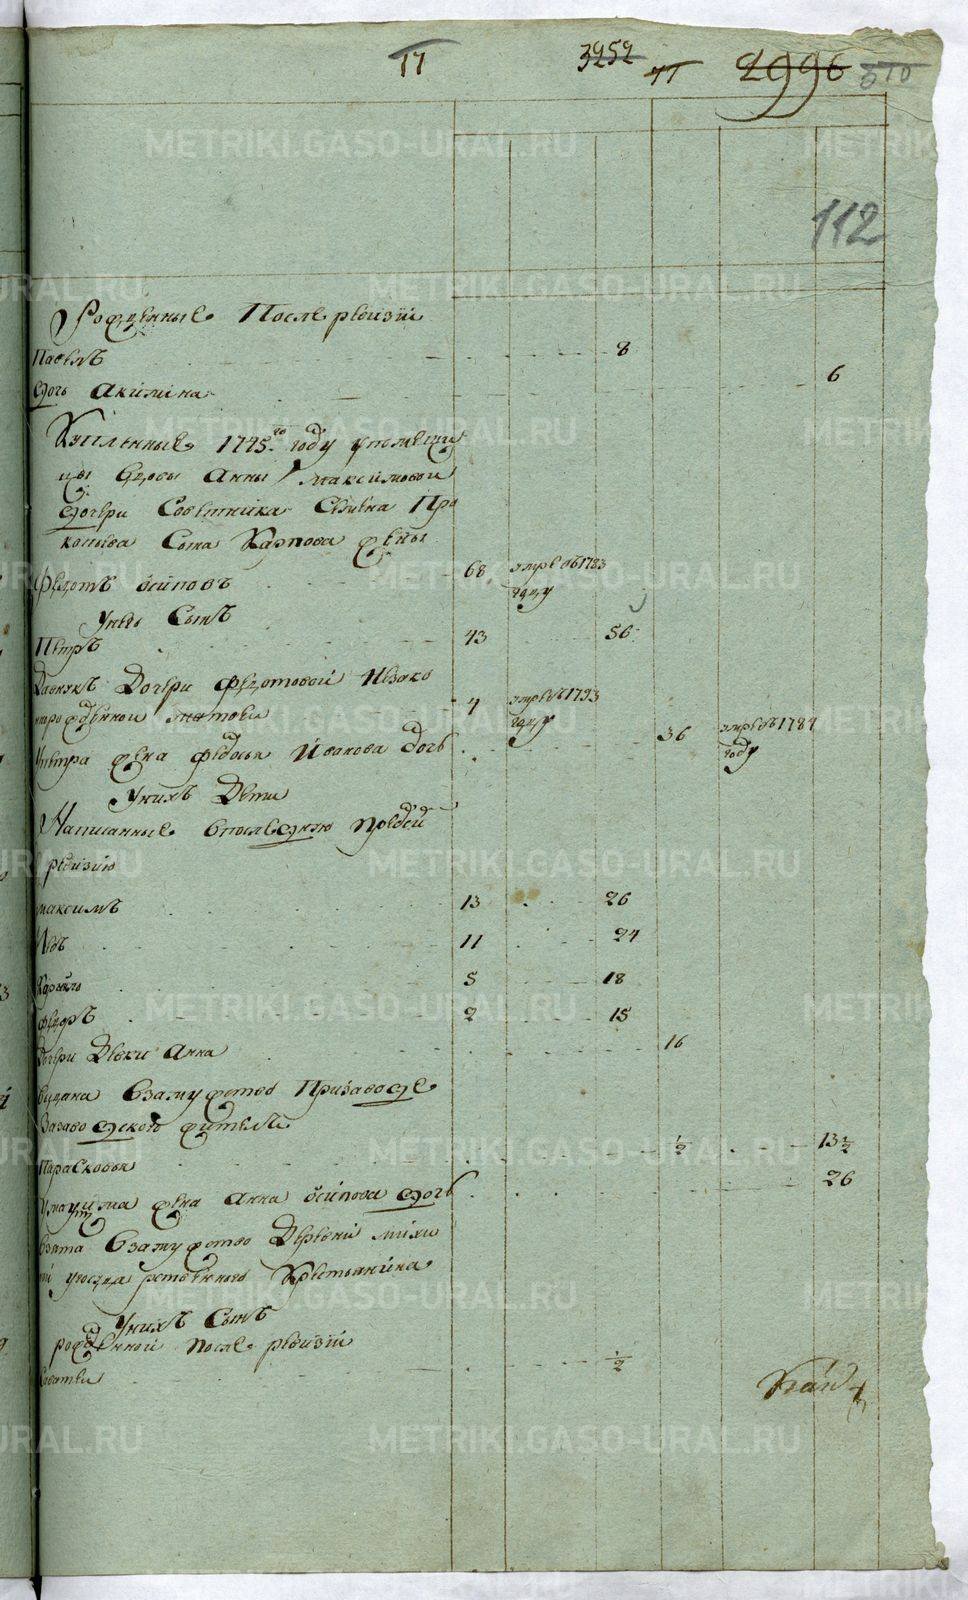 17 3252 77 2996 510
112
Рожденные После ревизии
Павелъ 8
дочь Акилина 6
Купленные 1775го году упомещи
цы вдовы Анны Максимовой
дочери Советника Сергея Про
кофьева Сына Карпова жены
Федотъ Осиповъ 68 умре въ 1783 году
Унево Сынъ
Петръ 43 56
Данныхъ Дочери федотовой Незако
норожденной Матвеи 4 умре въ 1793 году
Упетра жена Федосья Иванова дочь 36 умре въ 1784 году
Унихъ Дети
Написанные впоследнюю предъ сей
ревизию
Максимъ 13 26
Иовъ 11 24
Кирило 5 18
Федоръ 2 15
Дочери Девки Анна 16
выдана Взамужство Призаводе
Зазаводского жителя
Парасковья ½ 13½
Умаксима жена Анна Осипова дочь 26
взята Взамужство Деревни
уезда Крестьянина
Унихъ Сынъ
рожденной после ревизии
Саватеи ½